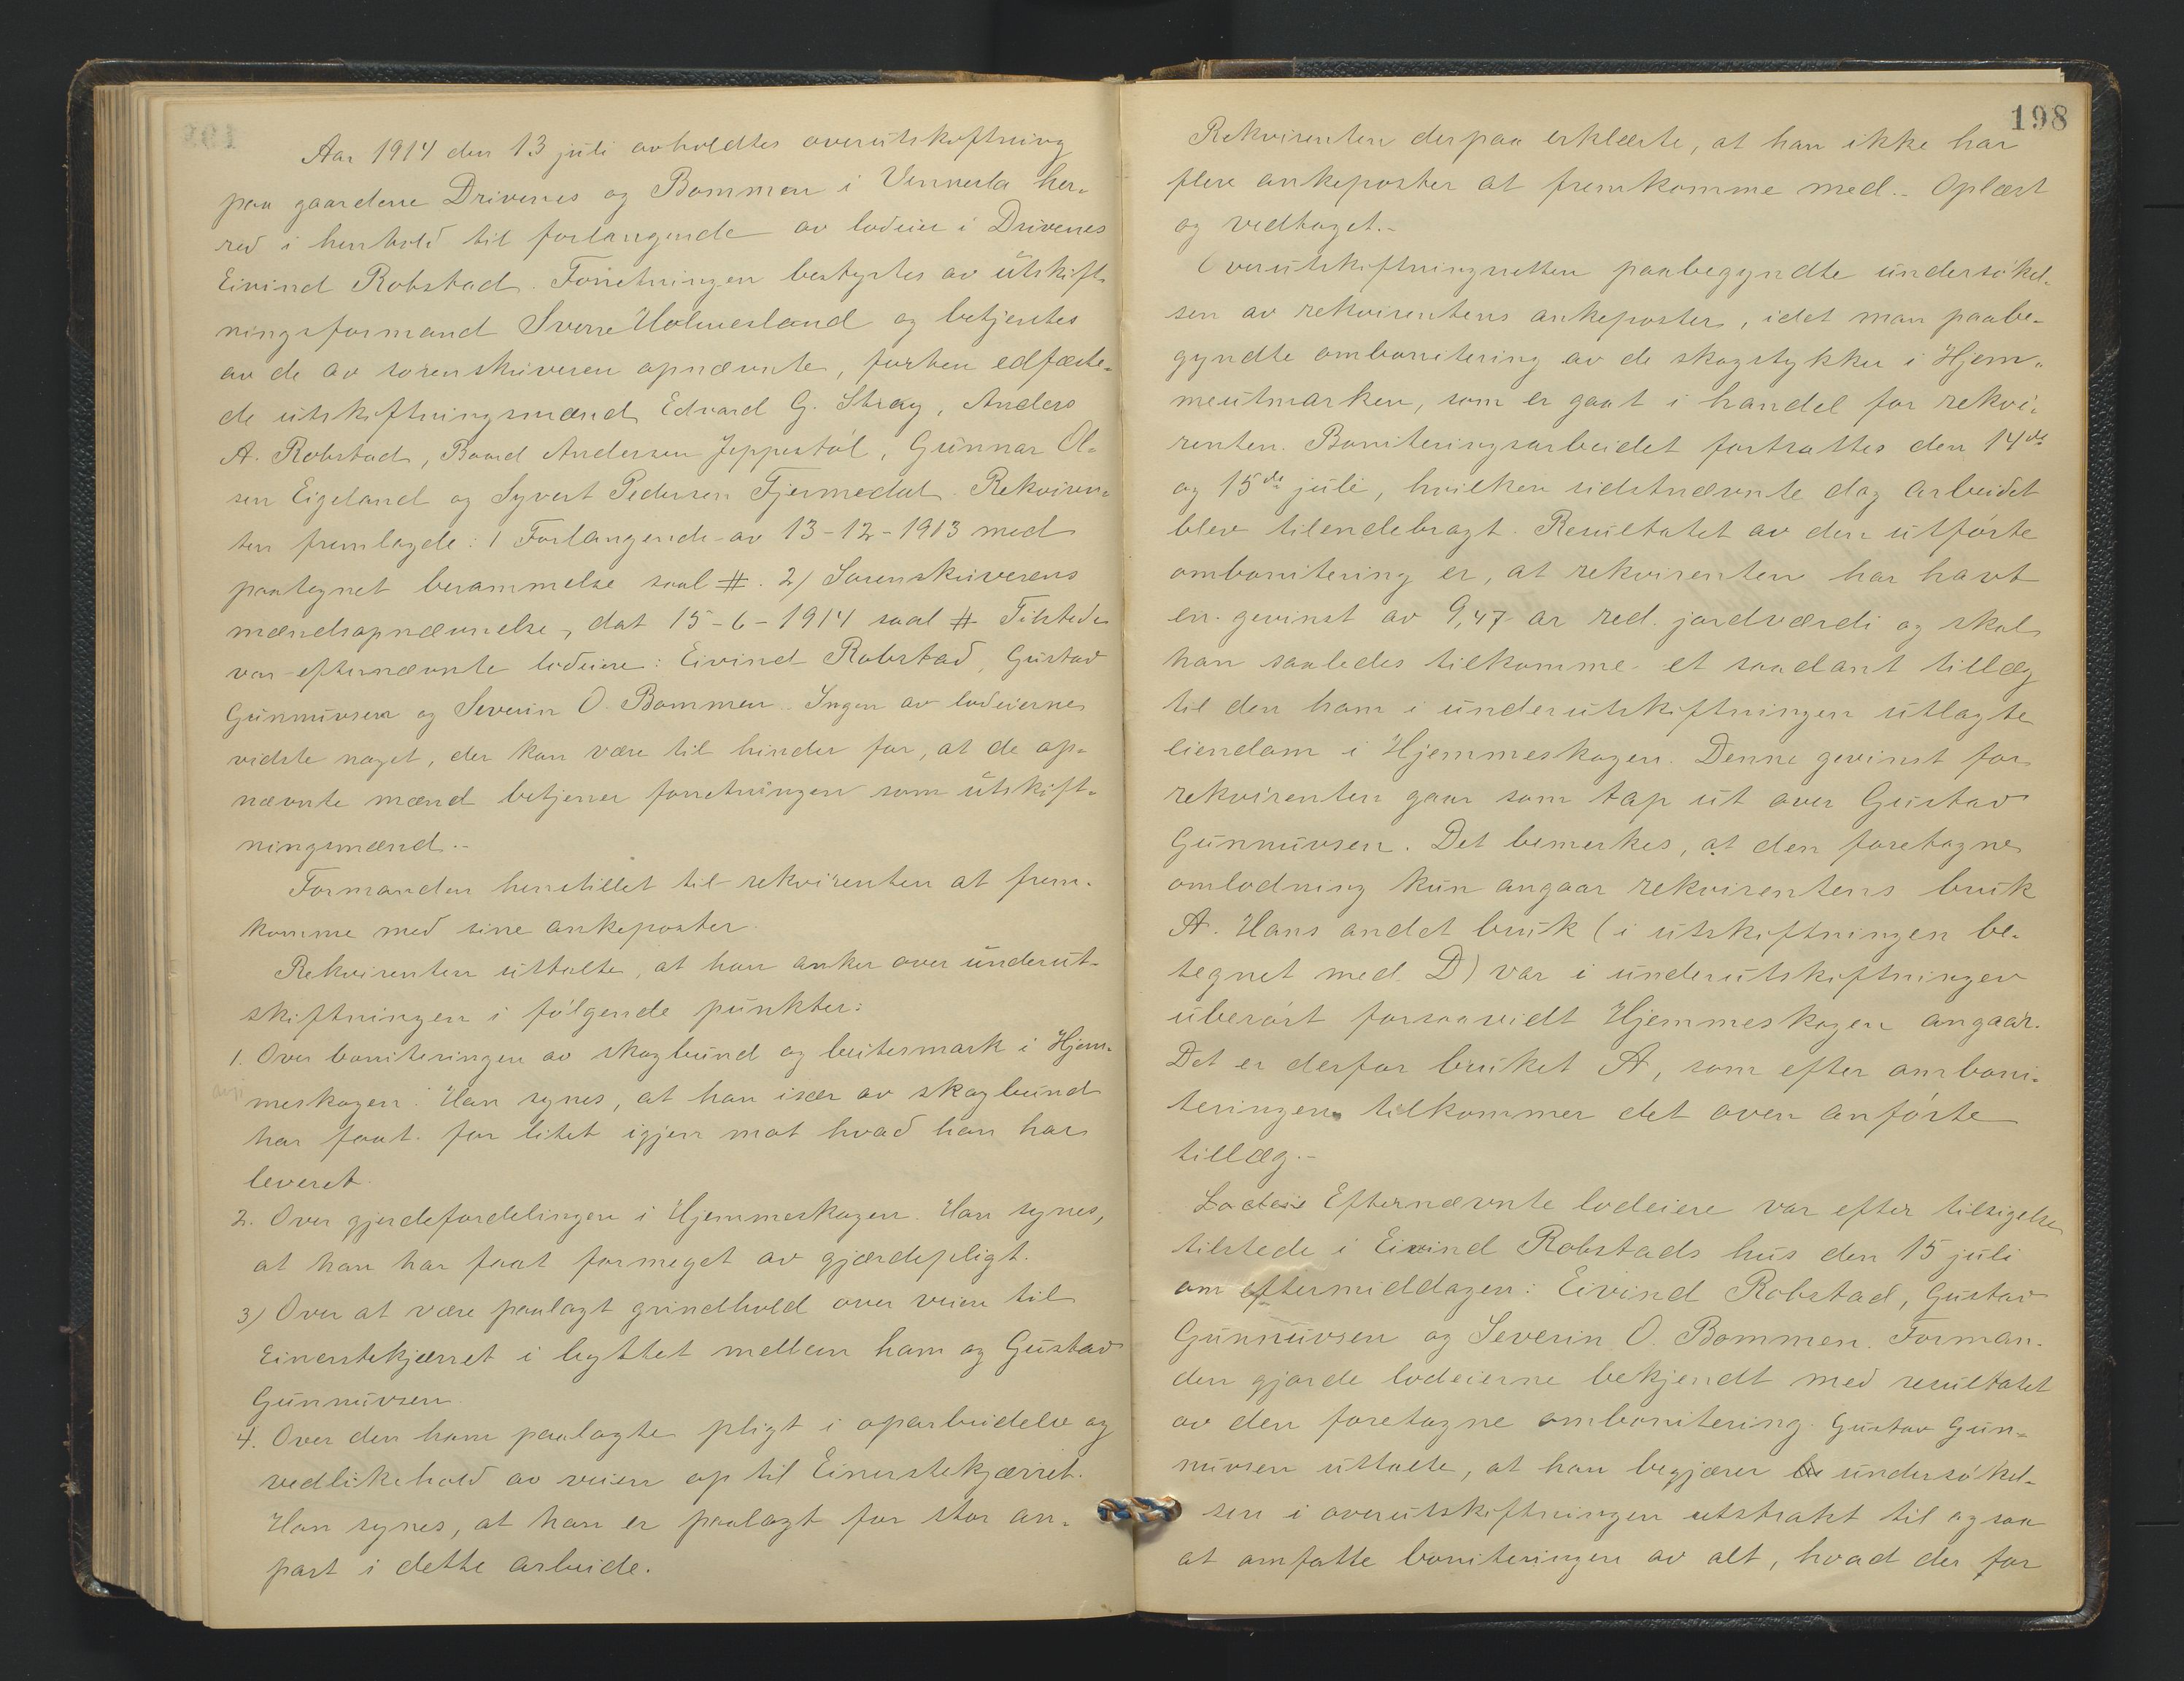 Aar 1914 den 13 juli avholdtes overutskiftning
paa gaardene Drivenes og Bommen i Vennesla her-
red i henhold til forlangende av lodeier i Drivenes
Eivind Robstad. Forretningen bestyrtes av utskift-
ningsformand Sverre Holmesland og betjentes
av de av sorenskriveren opnævnte, forhen edfæste-
de utskiftningsmænd Edvard G. Stray, Anders
A. Robstad, Baard Andersen Jeppestöl, Gunnar Ol-
sen Eigeland og Syvert Pedersen Fjermedal. Rekviren-
ten fremlagde: 1 Forlangende av 13-12-1913 med
paategnet berammelse saal #. 2) Sorenskriverens
mændsopnævnelse, dat 15-6-1914 saal # Tilstede
var efternævnte lodeiere: Eivind Robstad, Gustav
Gunnuvsen og Severin O. Bommen. Ingen av lodeierne
vidste noget, der kan være til hinder for, at de op-
nævnte mænd betjener forretningen som utskift-
ningsmænd.-
Formanden henstillet til rekvirenten at frem-
komme med sine ankeposter.
Rekvirenten uttalte, at han anker over underut-
skiftningen i følgende punkter:
1. Over boniteringen av skogbund og beitesmark i Hjem-
meskogen. Han synes, at han især av skogbund
har faat for litet igjen mot hvad han har
leveret.
2. Over gjerdefordelingen i Hjemmeskogen. Han synes,
at han har faat formeget av gjærdepligt.
3) Over at være paalagt grindhold over veien til
Einerstekjærret i byttet mellem ham og Gustav
Gunnuvsen.
4. Over den ham paalagte pligt i oparbeidelse og
vedlikehold av veien op til Einerstekjærret.
Han synes, at han er paalagt for stor an-
part i dette arbeide.
198
Rekvirenten derpaa erklærte, at han ikke har
flere ankeposter at fremkomme med.- Oplæst
og vedtaget.-
Overutskiftningsretten paabegyndte undersøkel-
sen av rekvirentens ankeposter, idet man paabe-
gyndte ombonitering av de skogstykker i Hjem-
meutmarken, som er gaat i handel for rekvi-
renten. Boniteringsarbeidet fortsattes den 14de
og 15de juli, hvilken sidstnævnte dag arbeidet
blev tilendebragt. Resultatet av den utførte
ombonitering er, at rekvirenten har havt
en gevinst av 9,47 ar red. jordværdi og skal
han saaledes tilkomme et saadant tillæg
til den ham i underutskiftningen utlagte
eiendom i Hjemmeskogen. Denne gevinst for
rekvirenten gaar som tap ut over Gustav
Gunnuvsen. Det bemerkes, at den foretagne
omlodning kun angaar rekvirentens bruk
A. Hans andet bruk (i utskiftningen be-
tegnet med D) var i underutskiftningen
uberørt forsaavidt Hjemmeskogen angaar.
Det er derfor bruket A, som efter omboni-
teringen tilkommer det oven anførte
tillæg.-
Lodeie Efternævnte lodeiere var efter tilsigelse
tilstede i Eivind Robstads hus den 15 juli
om eftermiddagen: Eivind Robstad, Gustav
Gunnuvsen og Severin O. Bommen. Forman-
den gjorde lodeierne bekjendt med resultatet
av den foretagne ombonitering. Gustav Gun-
nuvsen uttalte, at han begjærer undersøkel-
sen i overutskiftningen utstrakt til ogsaa
at omfatte boniteringen av alt, hvad der for